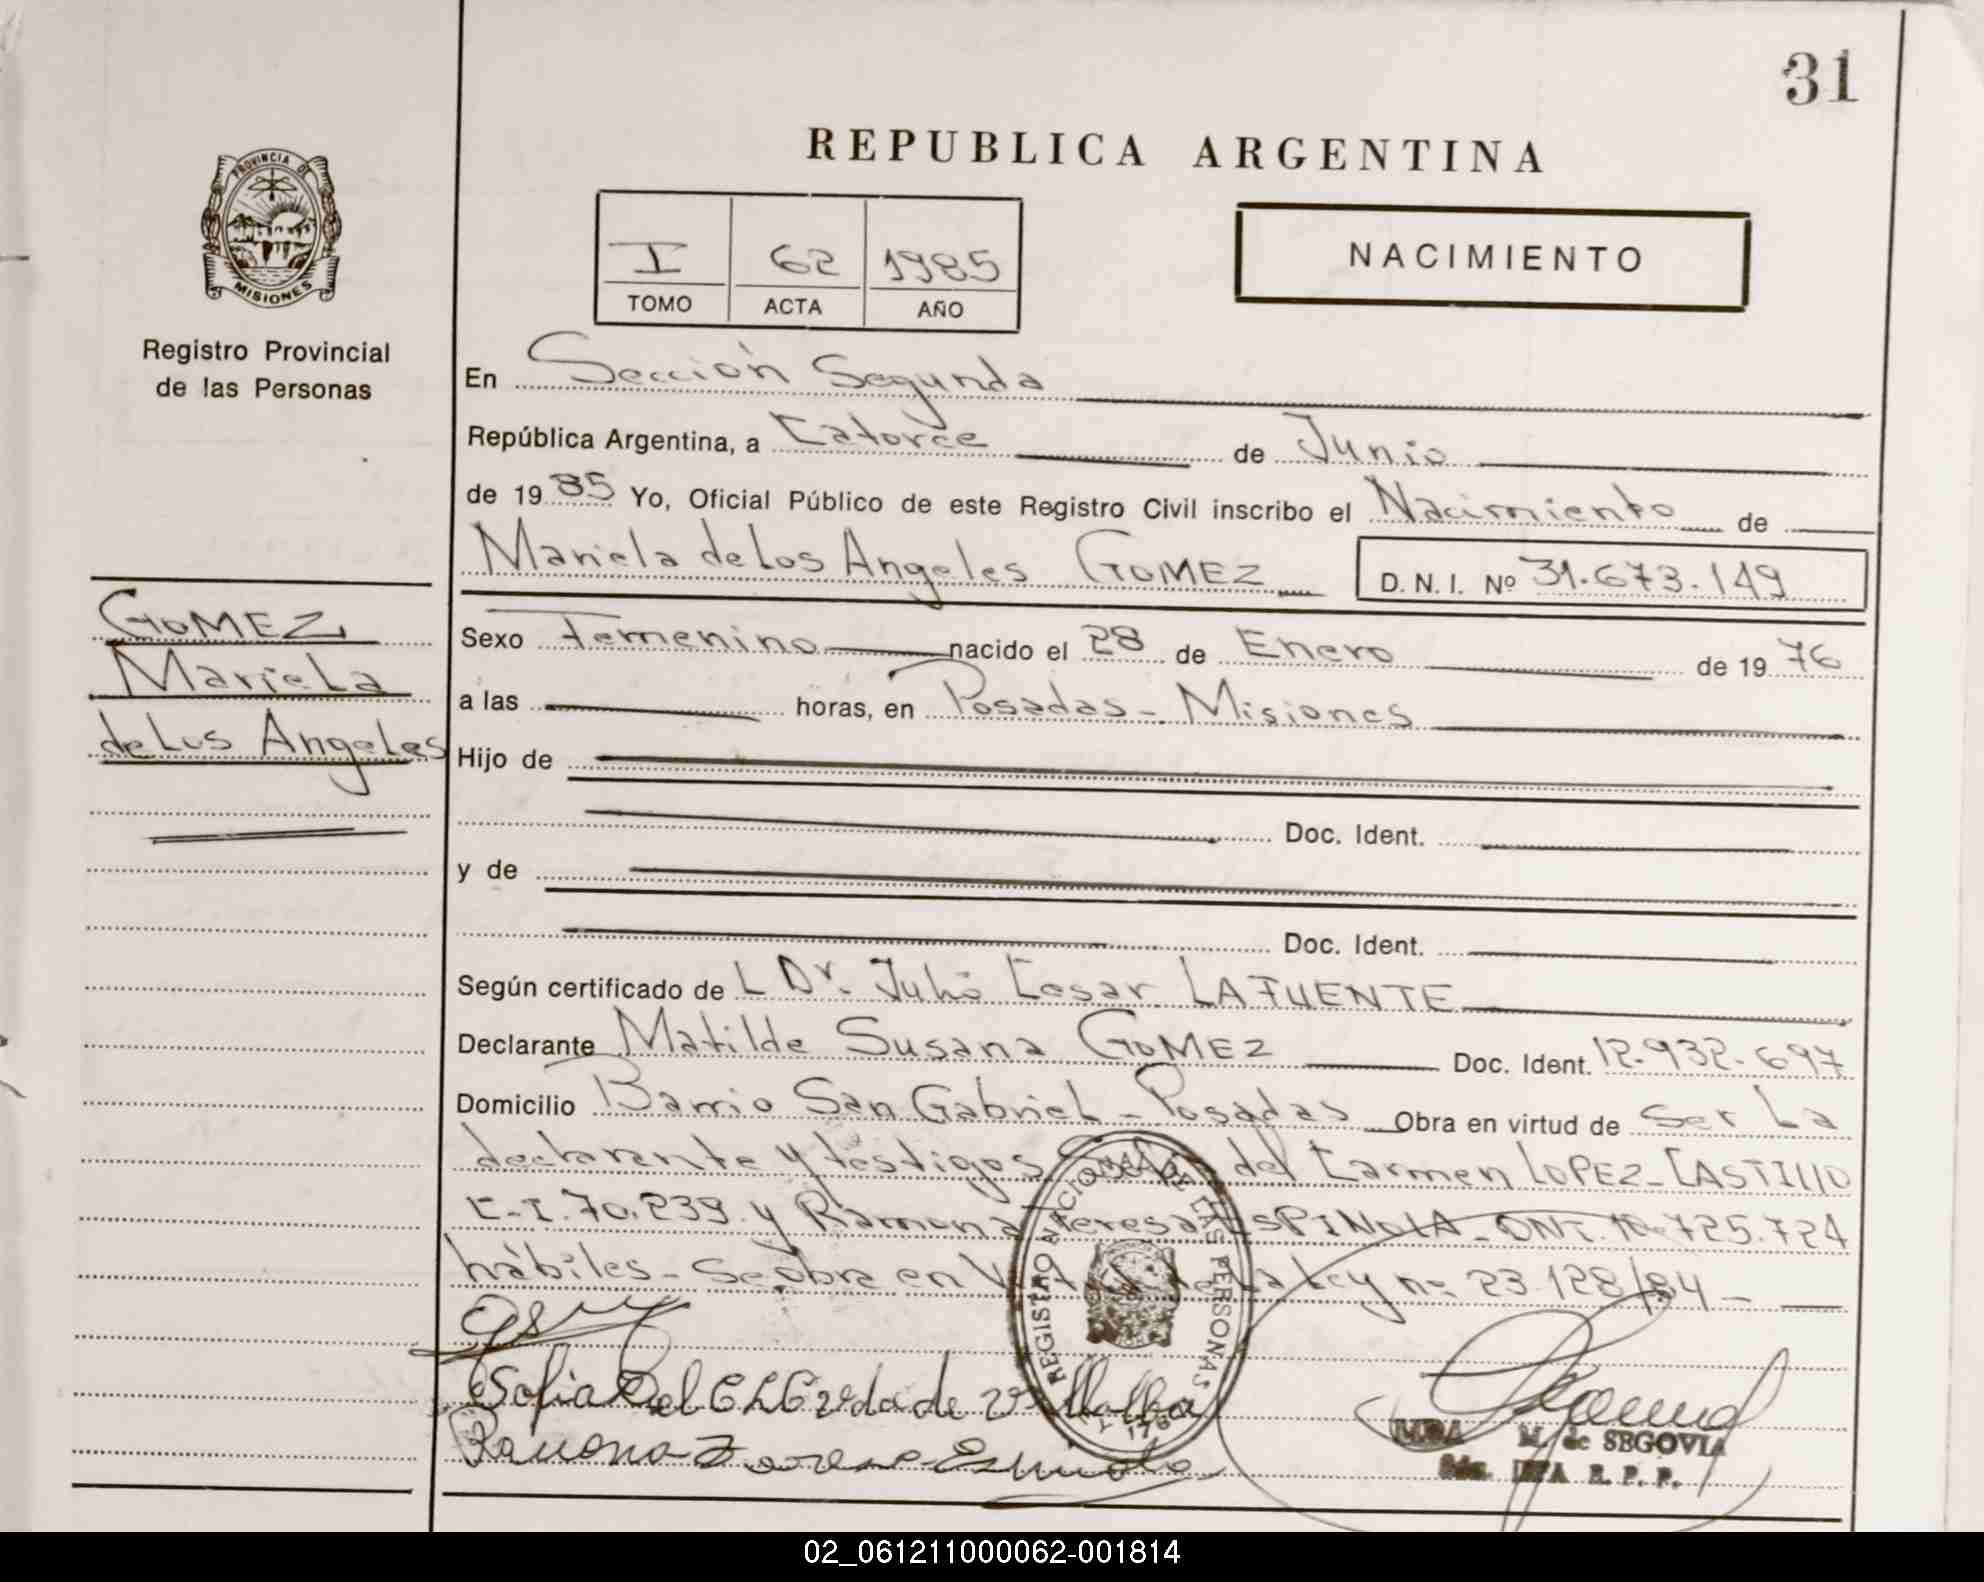 31
REPUBLICA ARGENTINA
PROVINCIA DE
MISIONES
Registro Provincial
de las Personas
I 62 1985
TOMO ACTA AÑO
NACIMIENTO
En Sección Segunda
República Argentina, a Catorce de Junio
de 1985 Yo, Oficial Público de este Registro Civil inscribo el Nacimiento de
Mariela de Los Angeles GOMEZ D. N. I. Nº 31.673.149
GOMEZ
Mariela
de Los Angeles
Sexo Femenino nacido el 28 de Enero de 1976
a las horas, en Posadas - Misiones
Hijo de
Doc. Ident.
y de
Doc. Ident.
Según certificado de L Dr. Julio Cesar LAFUENTE
Declarante Matilde Susana GOMEZ Doc. Ident. 12.932.697
Domicilio Barrio San Gabriel - Posadas Obra en virtud de Ser La
declarante y testigos del Carmen LOPEZ - CASTILLO
C.I. 70.239 y Ramona Teresa ESPINOLA - DNI. 10.725.724
hábiles - Se obra en de La Ley nº 23.128/84 -
REGISTRO NACIONAL DE LAS PERSONAS
Sofia del
Ramona Espinola
M. de SEGOVIA
R. P. P.
02_061211000062-001814